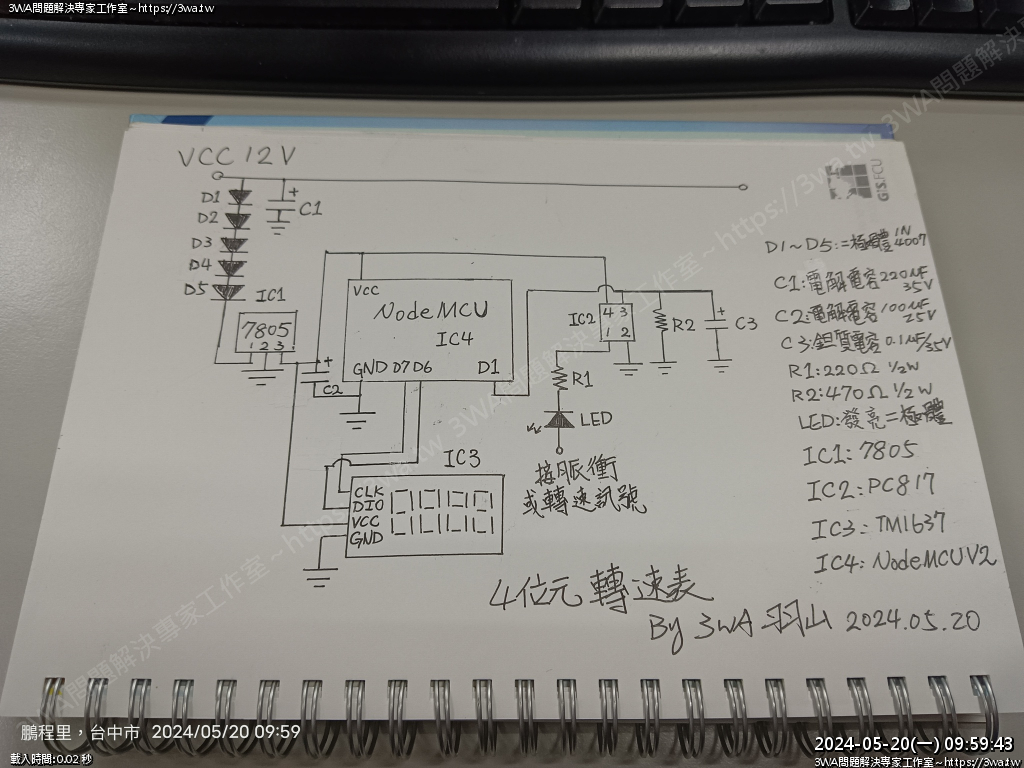 3WA問題解決專家工作室~https://3wa.tw
3WA問題解決專家工作室~https://3wa.tw
GIS.FCU
VCC 12V
D1
D2
D3
D4
D5
+
C1
IC1
7805
1 2 3
+
C2
VCC
NodeMCU
IC4
GND D7 D6 D1
IC2
4 3
1 2
R2
+
C3
R1
LED
接脈衝
或轉速訊號
IC3
CLK
DIO
VCC
GND
D1~D5:二極體 1N4007
C1:電解電容220uF
35V
C2:電解電容100uF
25V
C3:鉭質電容0.1uF/35V
R1:220Ω ½W
R2:470Ω ½W
LED:發亮二極體
IC1:7805
IC2:PC817
IC3:TM1637
IC4:NodeMCUV2
4位元 轉速表
By 3WA 羽山 2024.05.20
鵬程里,台中市 2024/05/20 09:59
載入時間:0.02 秒
2024-05-20(一) 09:59:43
3WA問題解決專家工作室~https://3wa.tw